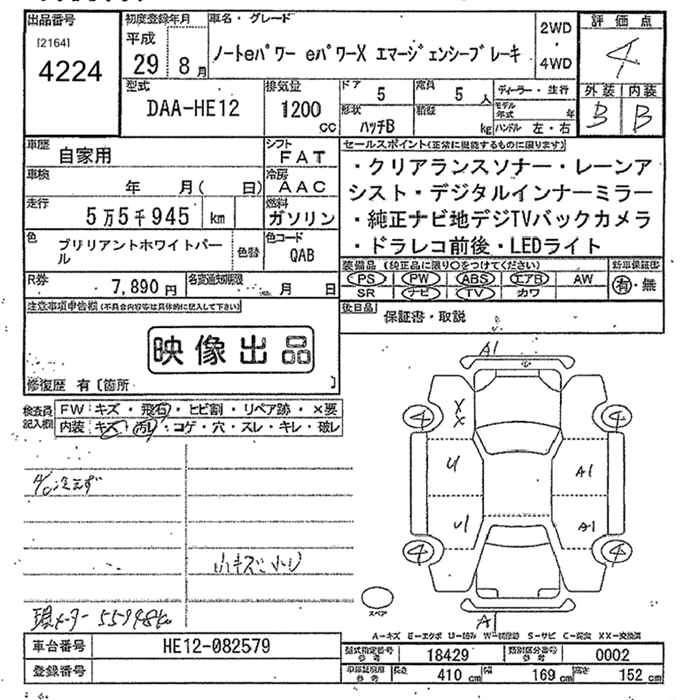 出品番号
[2164]
4224
初度登録年月
平成
29 8 月
車名・グレード
ノートeパワー eパワーX エマージェンシーブレーキ
2WD
・
4WD
評価点
4
外装 内装
B B
型式
DAA-HE12
排気量
1200
cc
ドア 5
定員 5 人
形状
ハッチB
積載
kg
ディーラー・並行
モデル年式 年
ハンドル 左・右
車歴
自家用
シフト
FAT
車検
年 月( 日)
冷房
AAC
走行
5万5千945 km
燃料
ガソリン
色
ブリリアントホワイトパール
色替
色コード
QAB
R券
7,890円
名変書類期限
月 日
セールスポイント(正常に機能するものに限ります)
・クリアランスソナー・レーンア
シスト・デジタルインナーミラー
・純正ナビ地デジTVバックカメラ
・ドラレコ前後・LEDライト
装備品 (純正品に限り○をつけてください)
PS PW ABS エアB AW
SR ナビ TV カワ
新車保証書
有・無
後日品
保証書・取説
注意事項申告欄(不具合内容等は具体的に記入して下さい)
映像出品
修復歴 有〔箇所 〕
検査員記入欄
FW:キズ・飛石・ヒビ割・リペア跡・×要
内装:キズ・汚れ・コゲ・穴・スレ・キレ・破レ
A/C冷えず
小キズ
現メーター 55998km
A1
X
X
4 4
U A1
U1 A1
4 4
スペア
A
A-キズ E-エクボ U-凹み W-補修跡 S-サビ C-腐食 XX-交換済
車台番号
HE12-082579
登録番号
型式指定番号 参考
18429
類別区分番号 参考
0002
車検証数値 参考
長さ 410 cm
幅 169 cm
高さ 152 cm